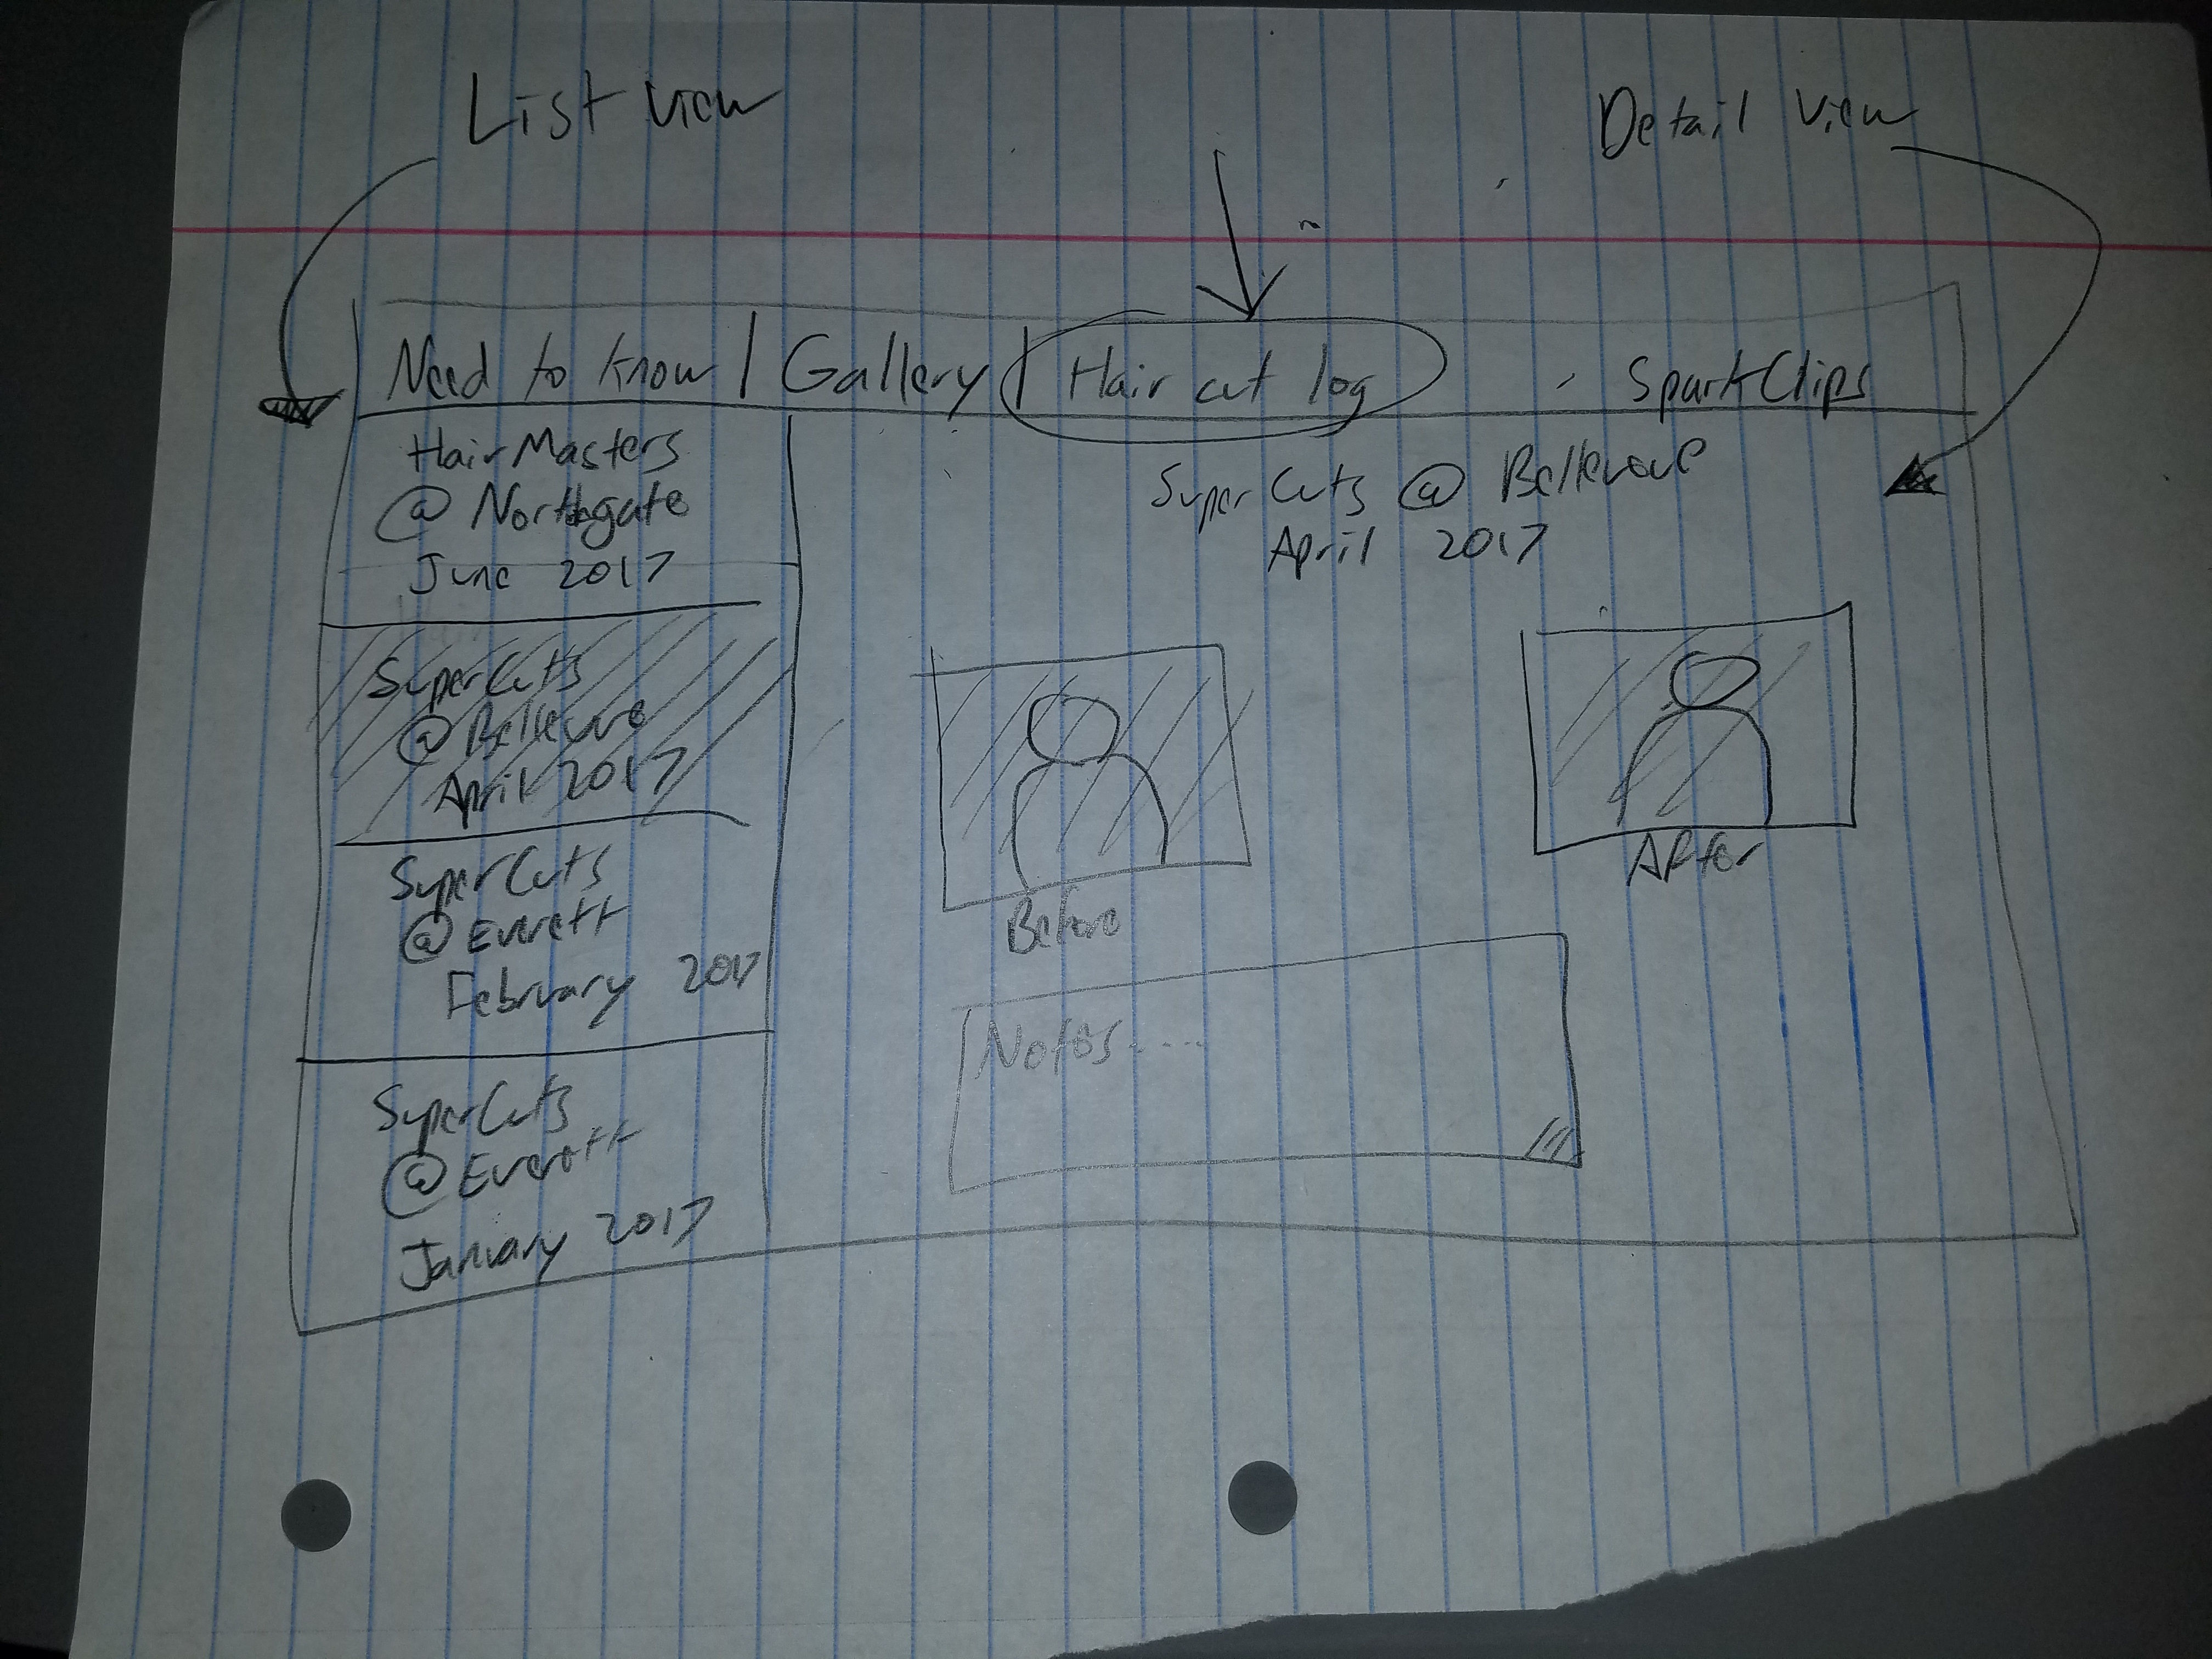 List view
Detail view
Need to know | Gallery | Hair cut log
SparkClips
HairMasters
@ Northgate
June 2017
SuperCuts
@ Bellevue
April 2017
SuperCuts
@ Everett
February 2017
SuperCuts
@ Everett
January 2017
SuperCuts @ Bellevue
April 2017
Before
After
Notes.....